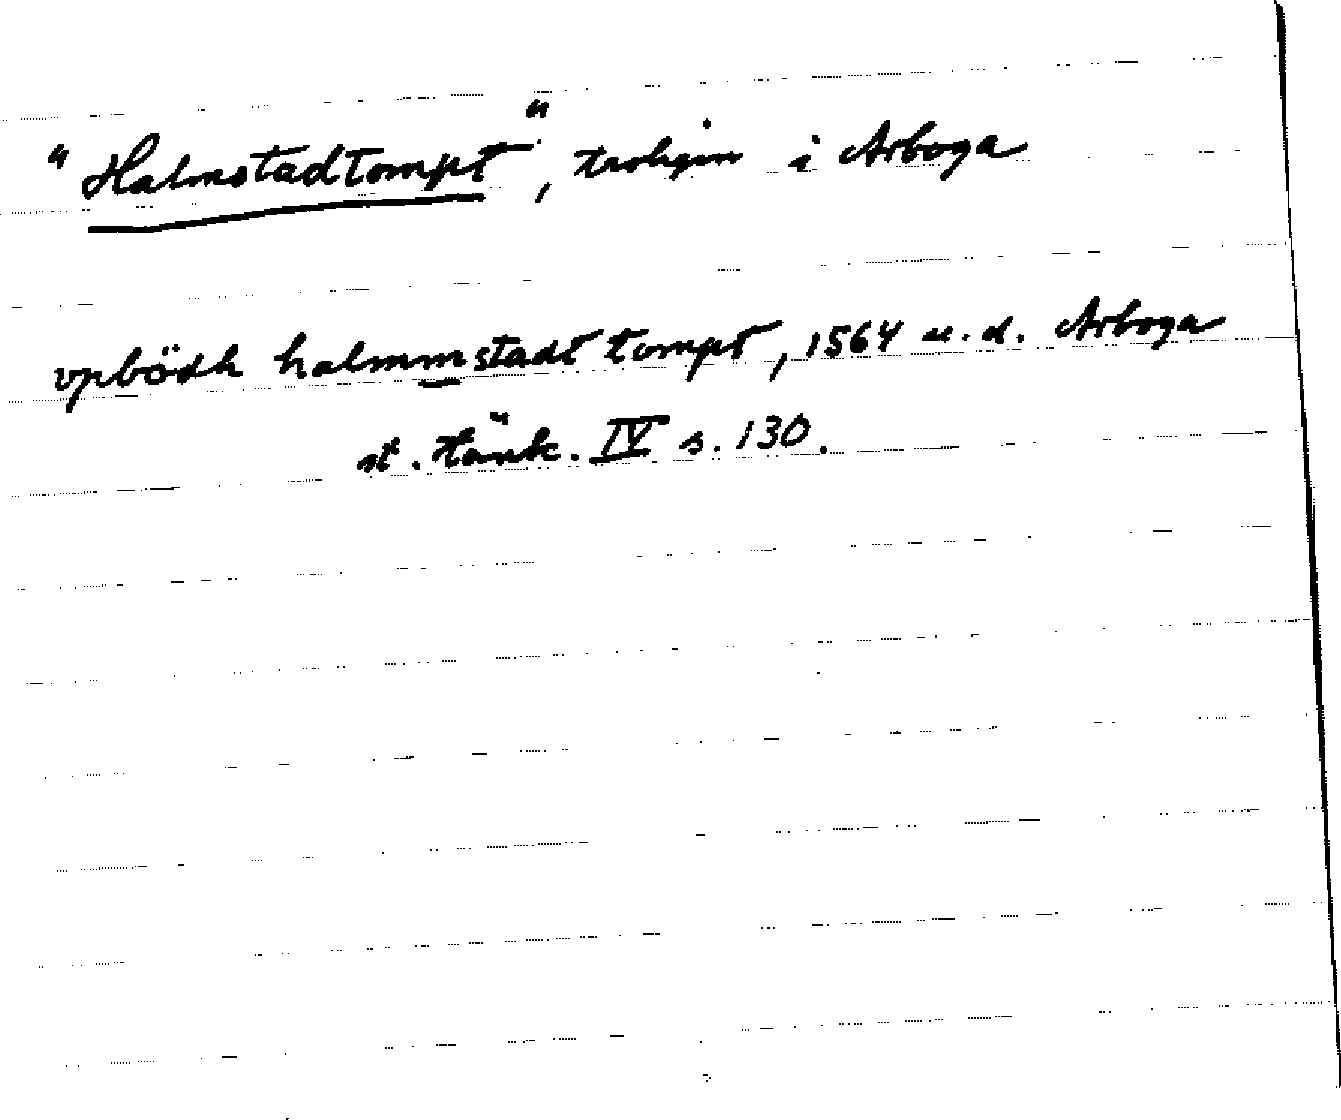 "Halmstadtompt", troligen i Arboga
vpbödh halmmstadt tompt, 1564 u. d. Arboga
st. tänk. IV s. 130.